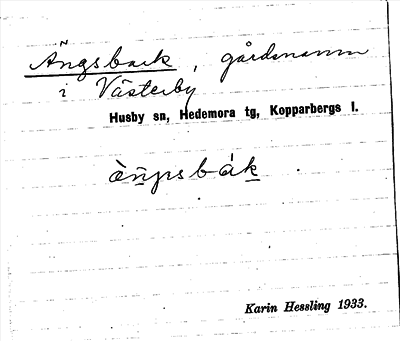 Ängsbark, gårdsnamn
i Västerby
Husby sn, Hedemora tg, Kopparbergs l.
Karin Hessling 1933.